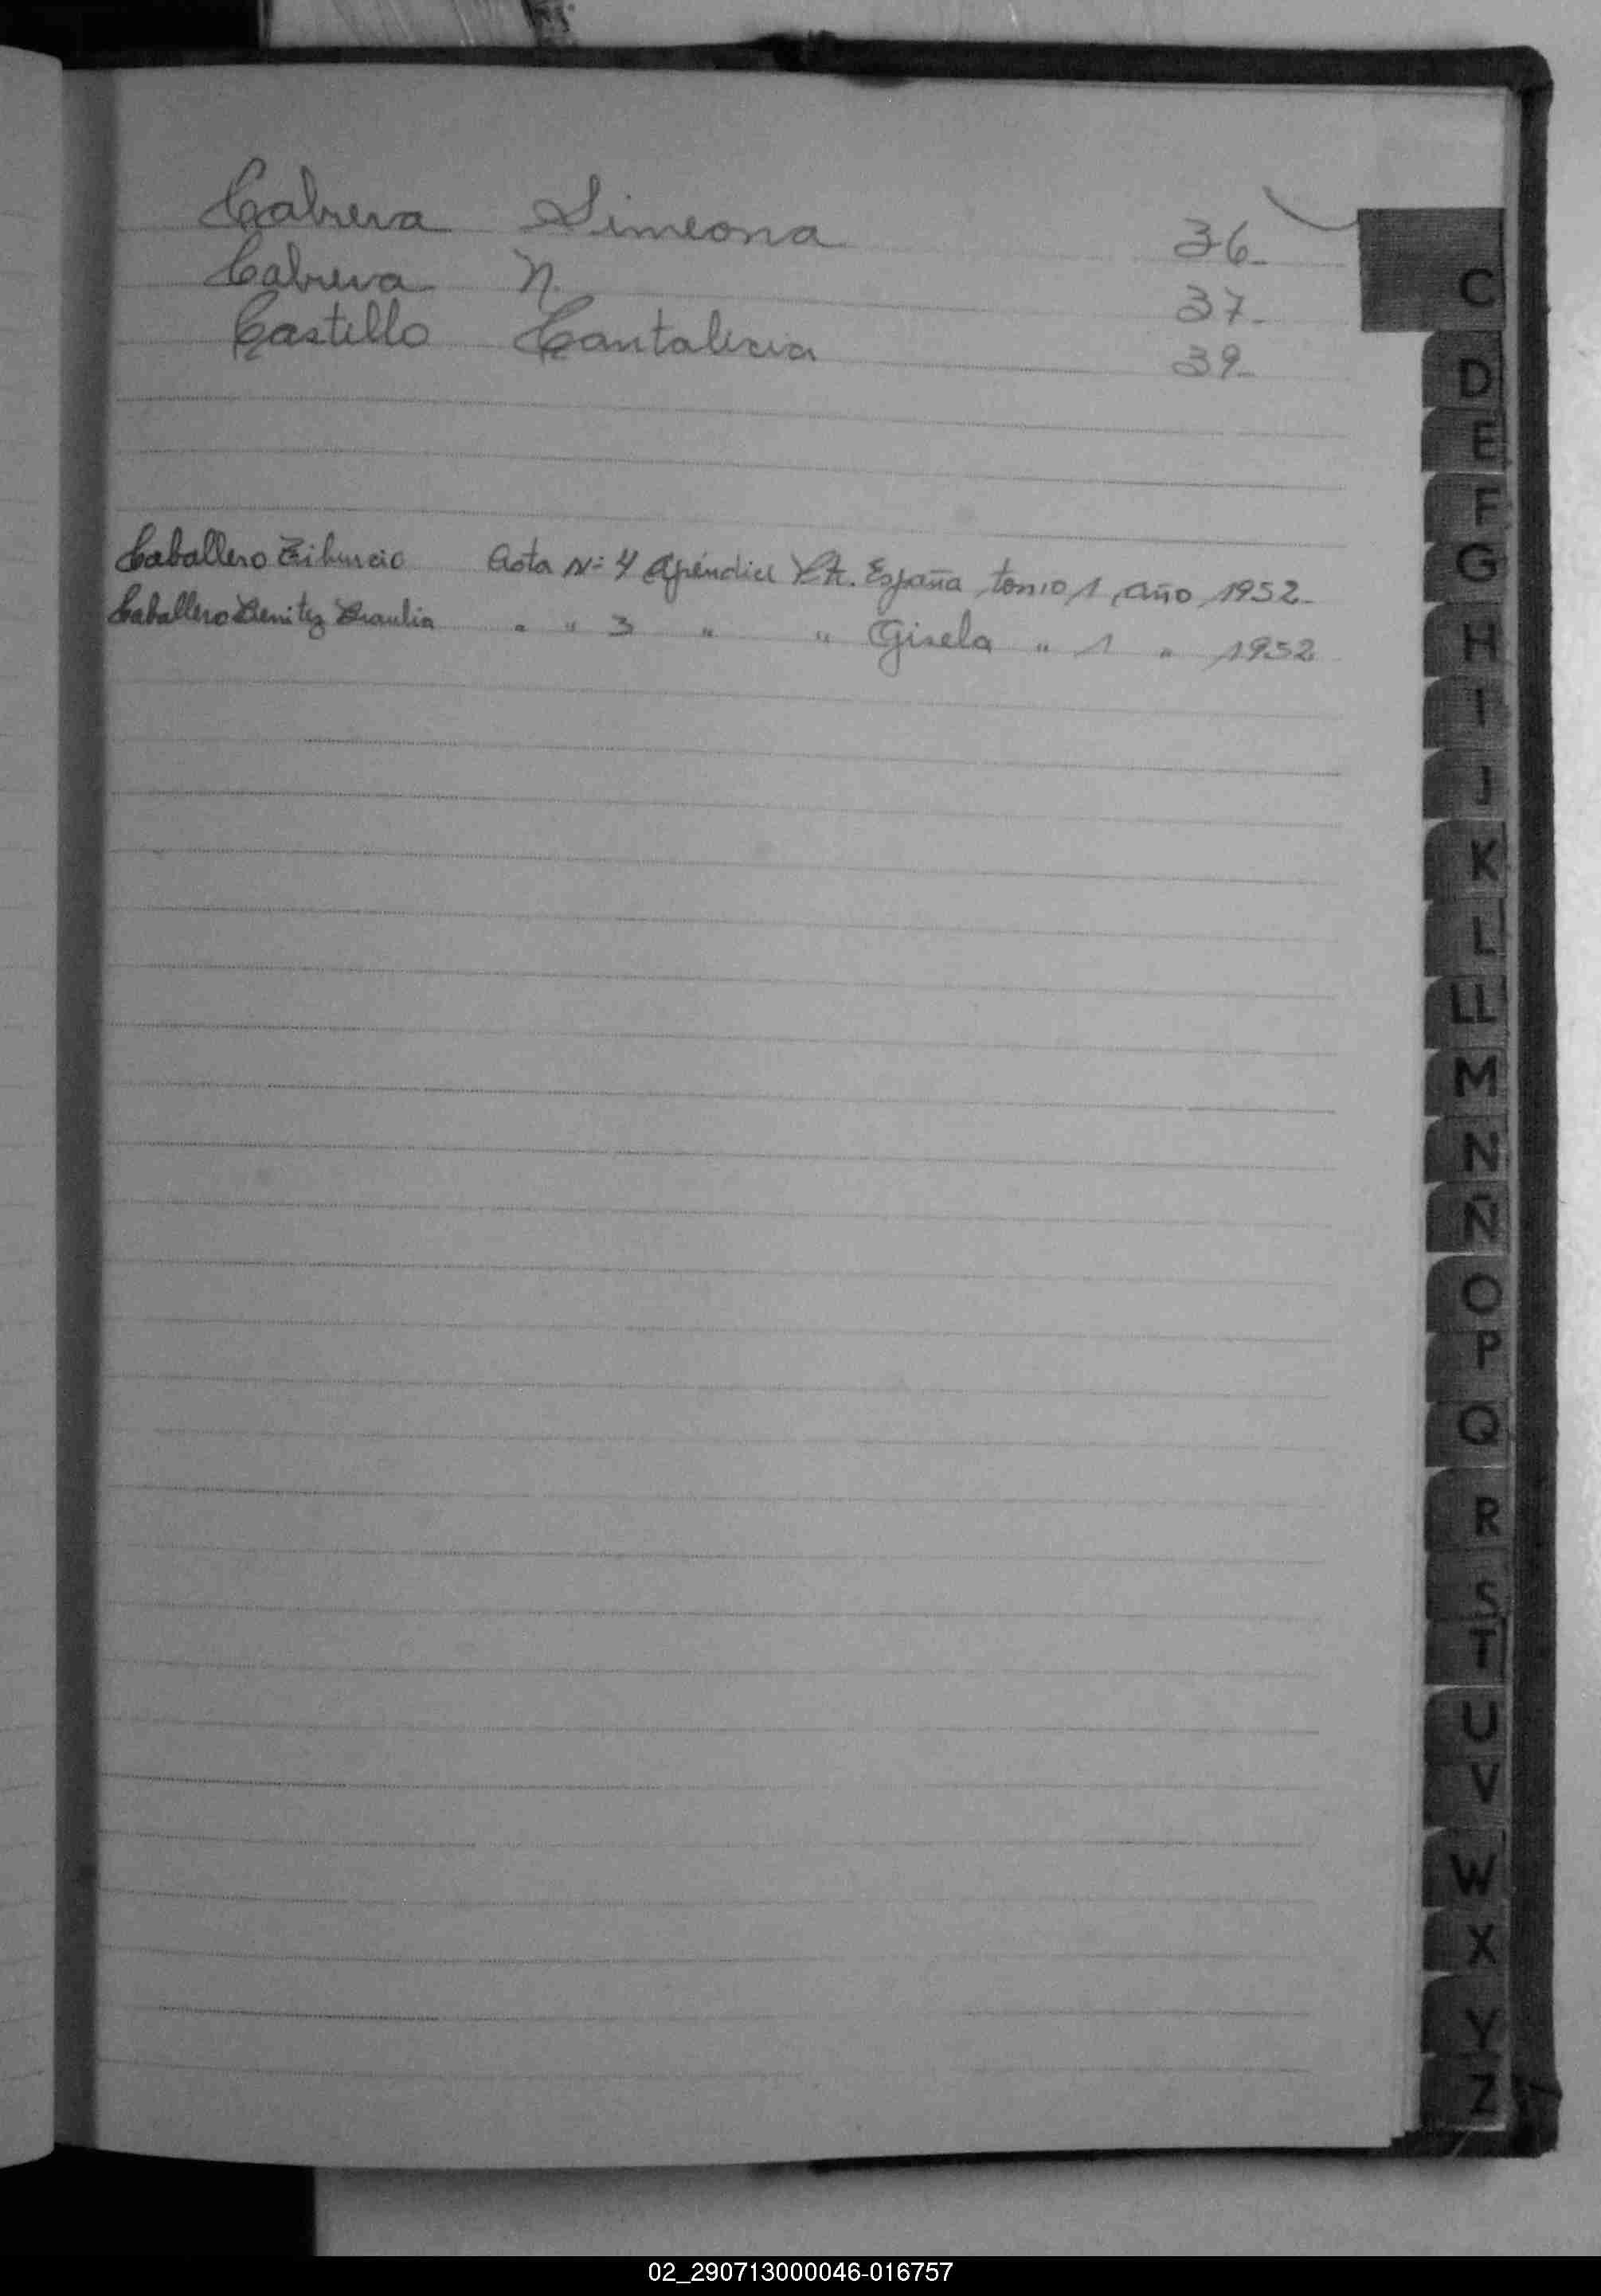 Cabrera Simeona 36-
Cabrera N. 37-
Castillo Cantalicia 39-
Caballero Tiburcio Acta Nº 4 Apéndice Yt. España, tomo 1, año 1952-
Caballero Benitez Braulia " " 3 " " Gisela " 1 " 1952
C
D
E
F
G
H
I
J
K
L
LL
M
N
Ñ
O
P
Q
R
S
T
U
V
W
X
Y
Z
02_290713000046-016757